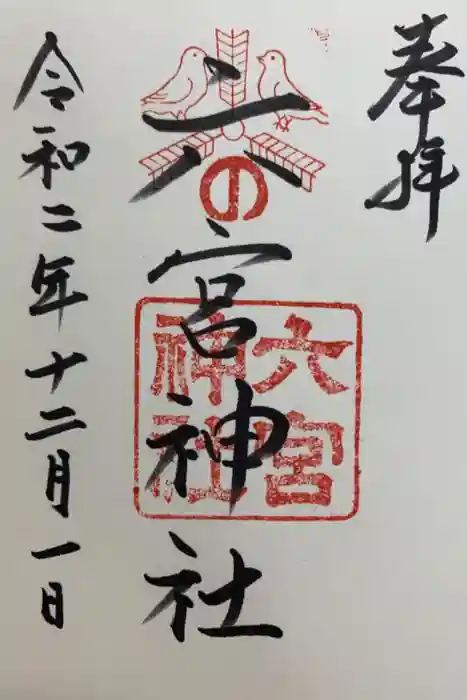 奉拝
六宮神社
の
六宮
神社
令和二年十二月一日